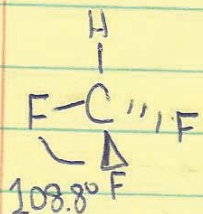 H
F C F
F
108.8°